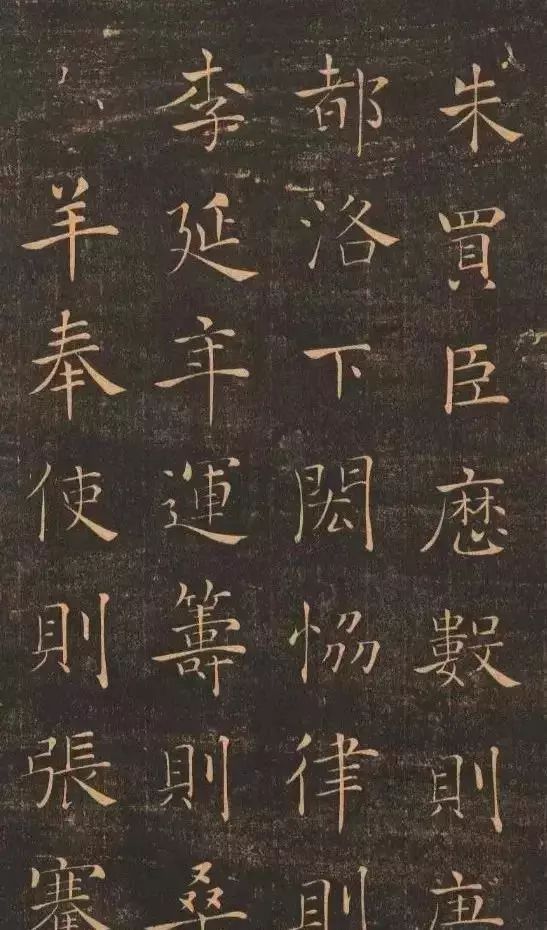 朱買臣曆數則唐
都洛下閎恊律則
李延年運籌則桑
羊奉使則張騫